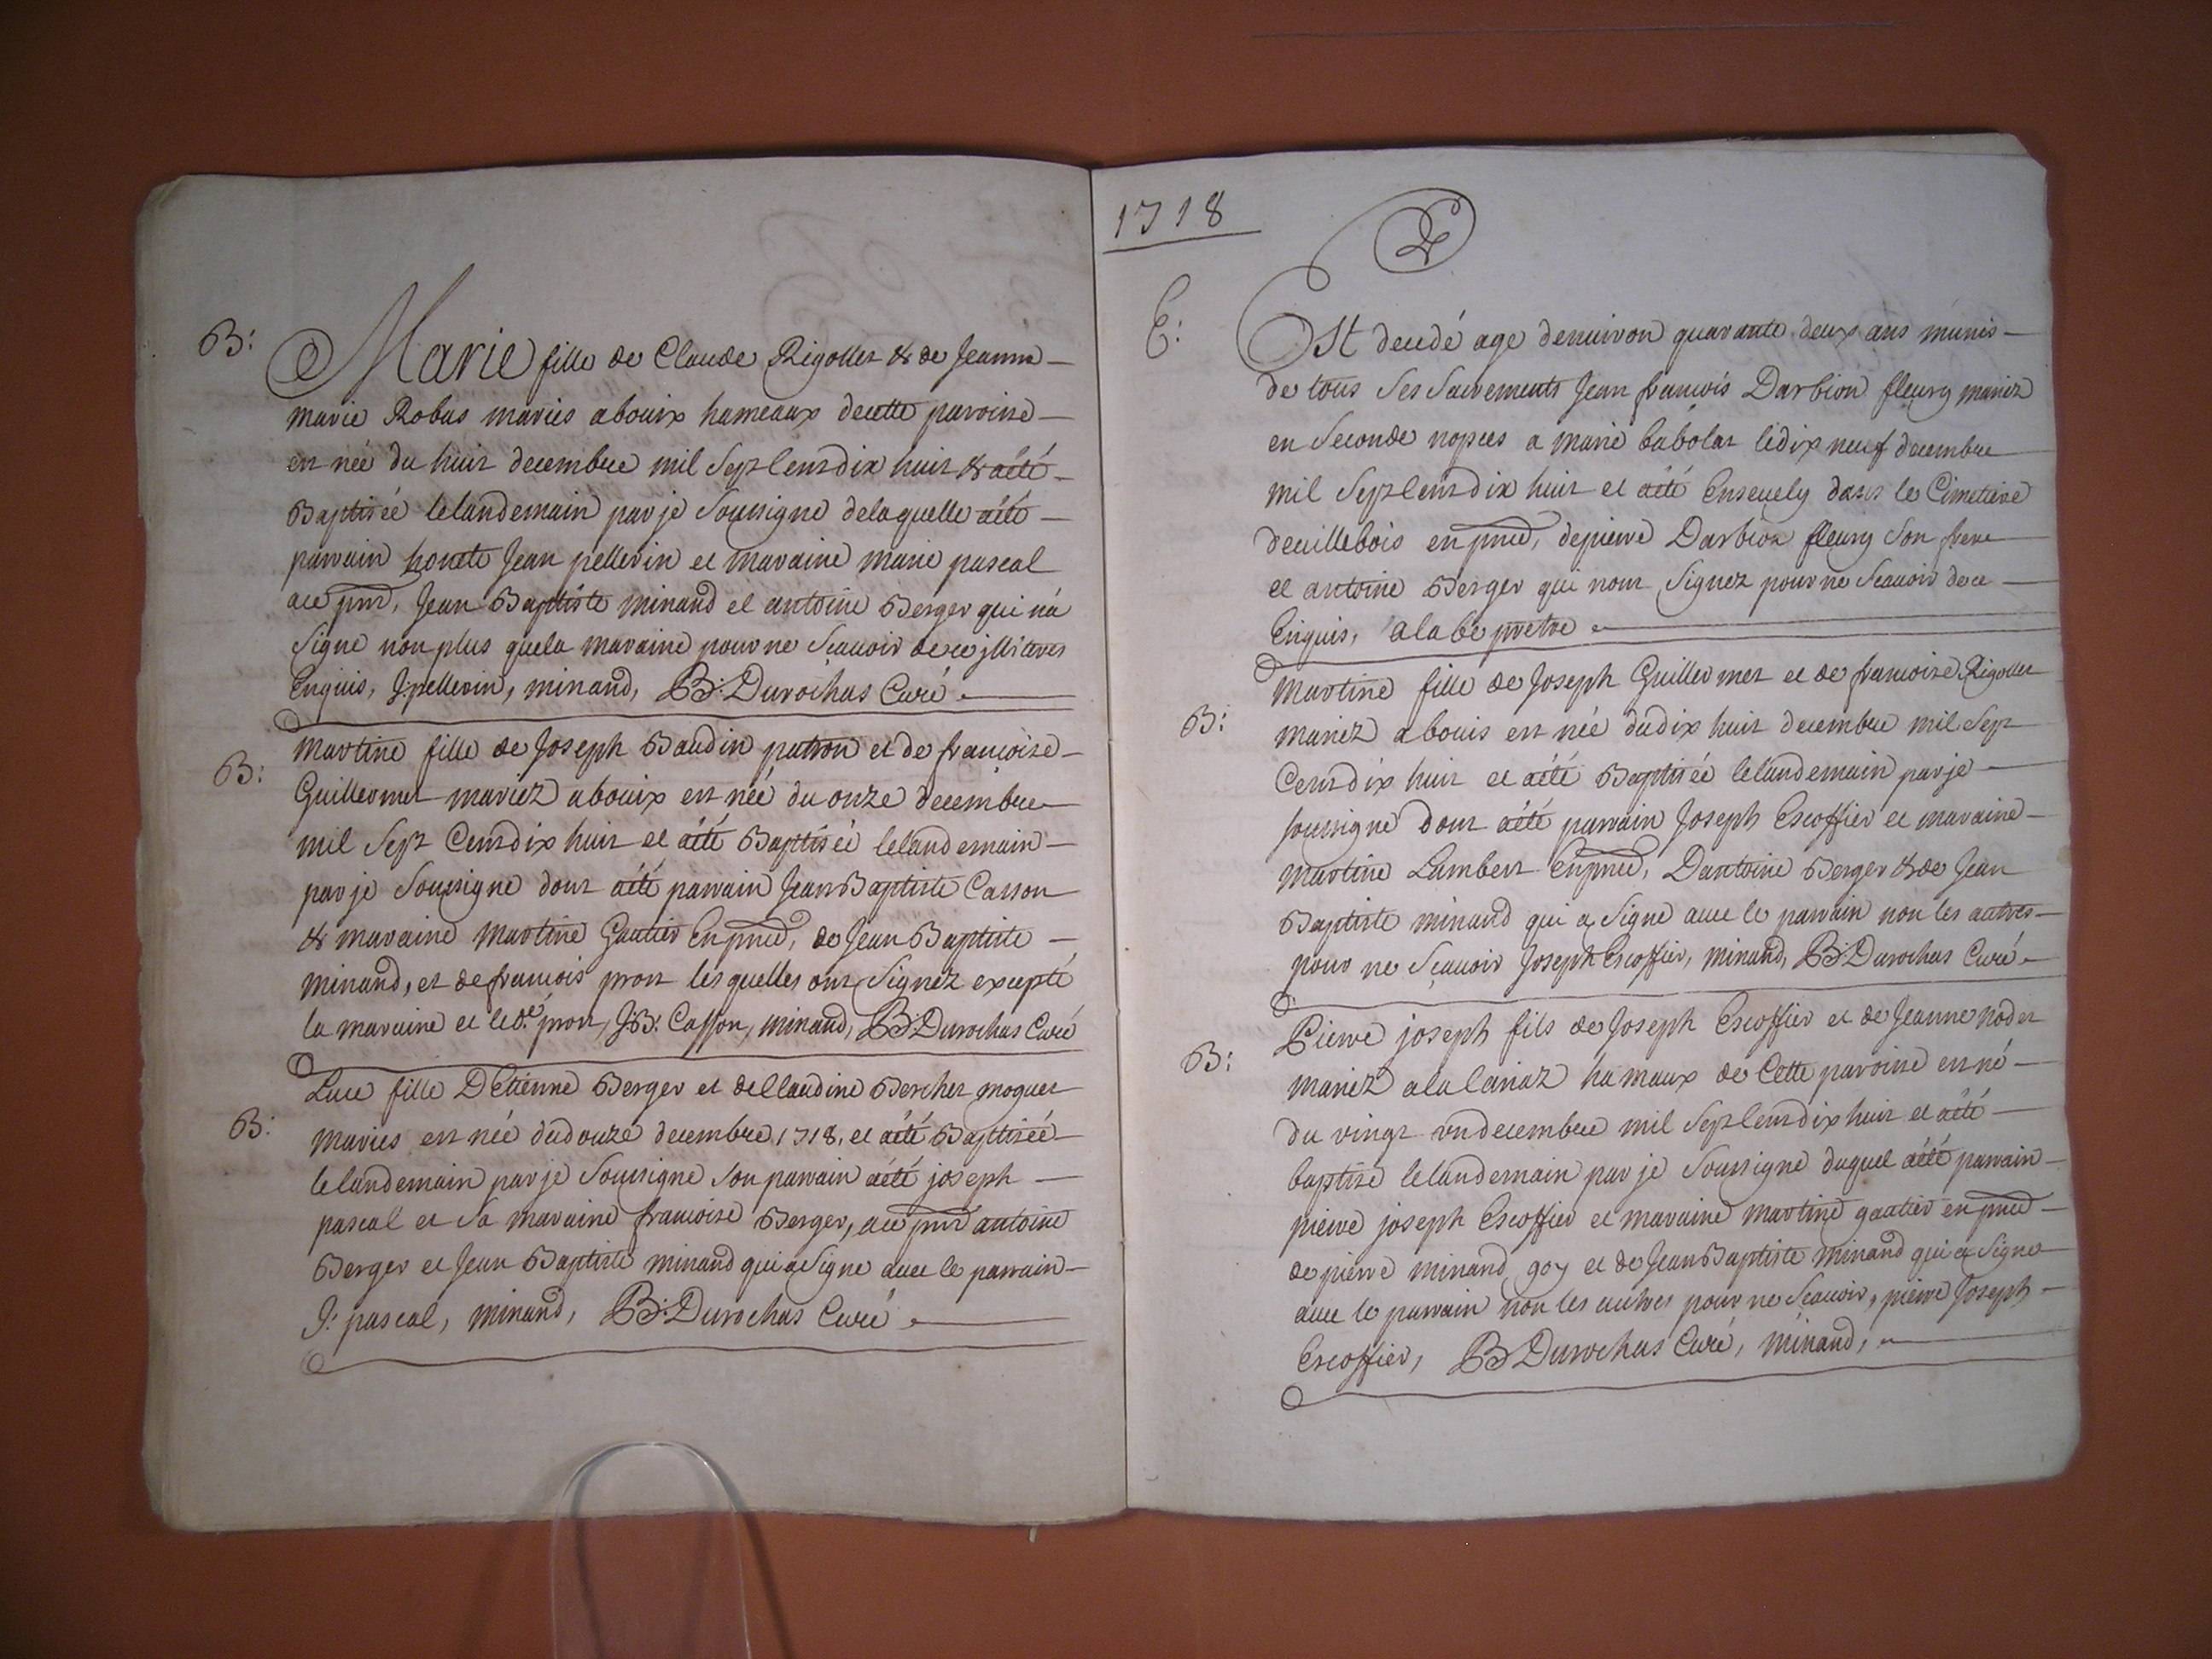 B:
Marie fille de Claude Rigollet & de Jeanne
marie Robas mariés abouix hameaux decette paroisse
est née du huit decembre mil Sept Cent dix huit & aété
Baptisée lelandemain par je Soussigne delaquelle aété
parrain honete Jean pellerin et maraine marie pascal
ace pnt, Jean Baptiste minand et antoine Berger qui na
Signe non plus quela maraine pour ne Scavoir dece illiteres
Enquis, J: pellerin, minand, B: Durochas Curé
B:
Martine fille de Joseph Baudin patron et de francoise
Guillermet mariez abouix est née du onze decembre
mil Sept Cent dix huit et aété Baptisée lelandemain
par je Soussigne dont aété parrain Jean Baptiste Casson
& maraine martine Gautier En pnce, de Jean Baptiste
minand, et de francois pront lesquelles ont Signez excepté
la maraine et led.t pront, J: B: Casson, minand, B: Durochas Curé
B:
Luce fille D'Etienne Berger et de Claudine Bercher moguet
mariés est née dudouze decembre 1718, et aété Baptisée
lelandemain par je Soussigne Son parrain aété joseph
pascal et Sa maraine francoise Berger, ace pnt antoine
Berger et Jean Baptiste minand qui a Signe avec le parrain
J: pascal, minand, B: Durochas Curé
1718
2
E:
Est decedé age denuiron quarante deux ans munis
de tous Ses Sacrements Jean francois Darbion fleury mariez
en Seconde nopces a marie babolat ledix neuf decembre
mil Sept Cent dix huit et aété Enseuely dans le Cimetiere
deuillebois en pnce, depierre Darbion fleury Son frere
et antoine Berger qui nont Signez pour ne Scauoir dece
Enquis, alabe pretre
B:
Martine fille de Joseph Guillermet et de francoise Rigollet
mariez abouis est née dudix huit decembre mil Sept
Cent dix huit et aété Baptisée lelandemain par je
soussigne dont aété parrain Joseph Escoffier et maraine
martine Lambert En pnce, Dantoine Berger & de Jean
Baptiste minand qui a Signe avec le parrain non les autres
pour ne Scauoir Joseph Escoffier, minand, B: Durochas Curé
B:
Pierre joseph fils de Joseph Escoffier et de Jeanne nodet
mariez ala lauiaz hamaux de Cette paroisse est né
du vingt vn decembre mil Sept Cent dix huit et aété
baptisé lelandemain par je Soussigne duquel aété parrain
pierre joseph Escoffier et maraine martine gautier en pnce
de pierre minand goy et de Jean Baptiste minand qui a Signe
avec le parrain non les autres pour ne Scauoir, pierre Joseph
Escoffier, B Durochas Curé, minand,